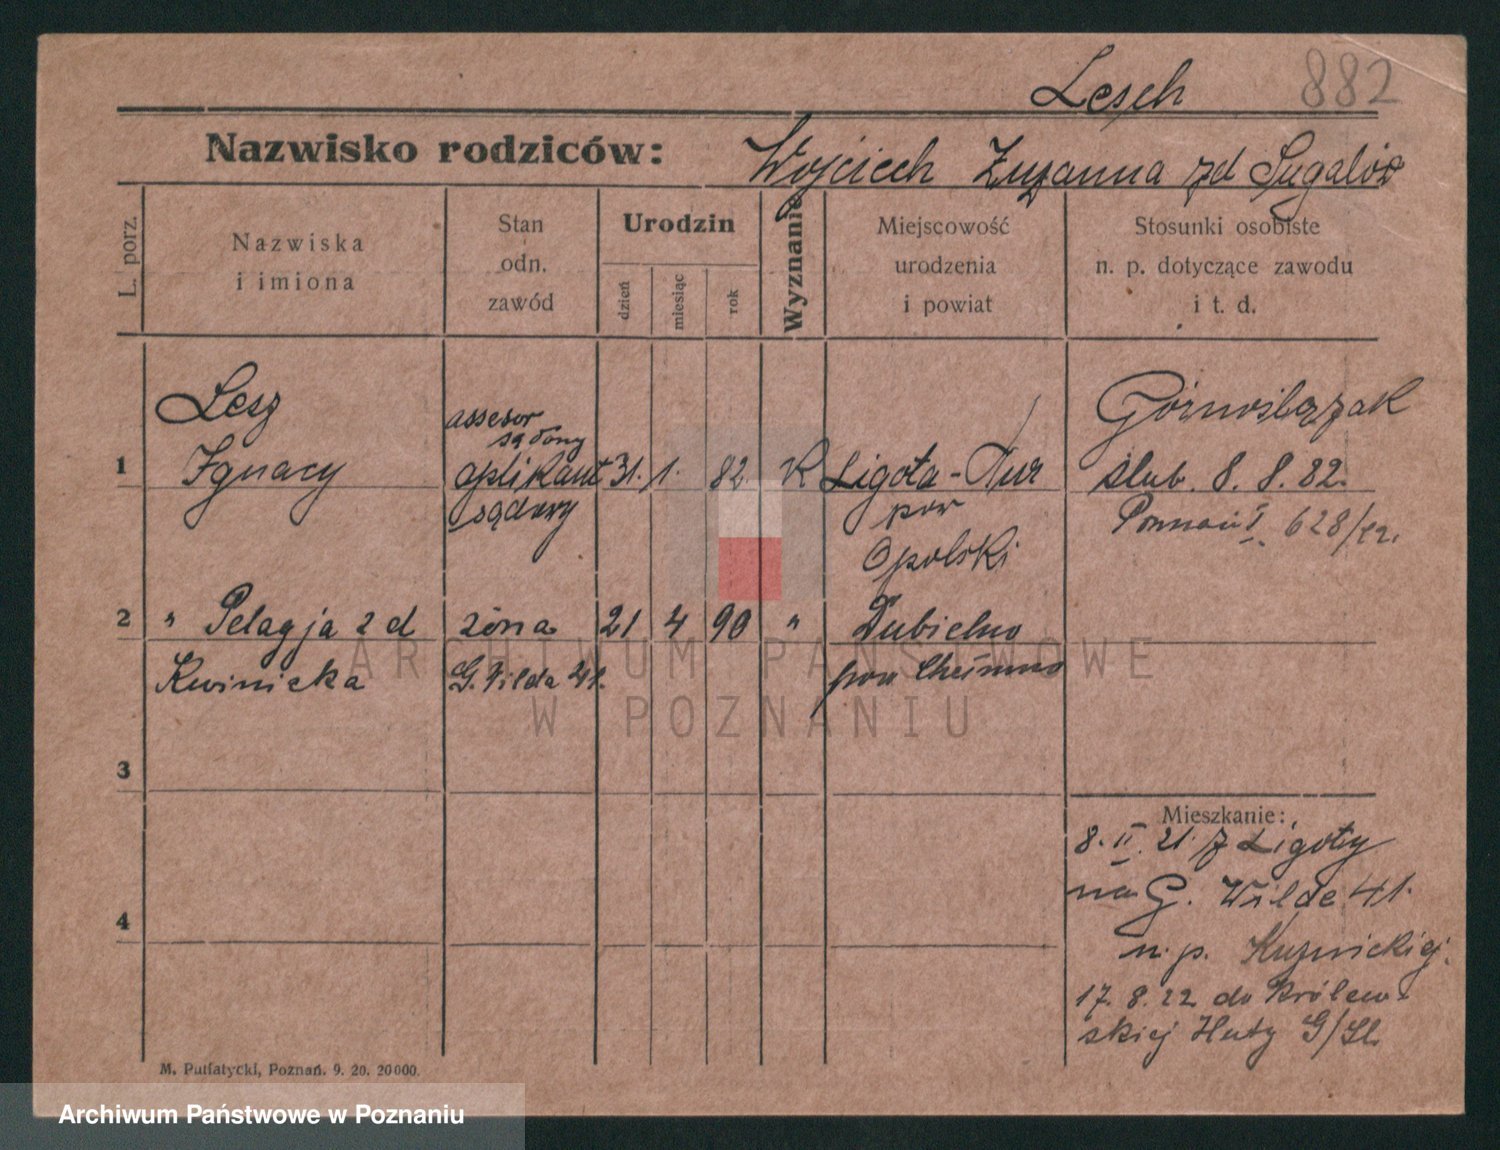 Lesch 882
Nazwisko rodziców: Wojciech Zuzanna zd
L. porz.
Nazwiska
i imiona
Stan
odn.
zawód
Urodzin
dzień
miesiąc
rok
Wyznanie
Miejscowość
urodzenia
i powiat
Stosunki osobiste
n. p. dotyczące zawodu
i t. d.
1
Lesz
Ignacy
assesor
sądowy
aplikant
sądowy
31. 1. 82. K
Ligota-Tur
pow
Opolski
Górnoślązak
ślub. 8. 8. 22.
Poznań I. 628/22.
2
" Pelagja z d
Kwinicka
żona
G. Wilda 41.
21 4 90 "
Dubielno
pow Chełmno
3
4
Mieszkanie:
8. II. 21. z Ligoty
na G. Wilde 41.
n. p. Kuźnickiej.
17. 8. 22 do Królew-
skiej Huty G/Śl.
M. Putiatycki, Poznań. 9. 20. 20000.
ARCHIWUM PAŃSTWOWE
W POZNANIU
Archiwum Państwowe w Poznaniu